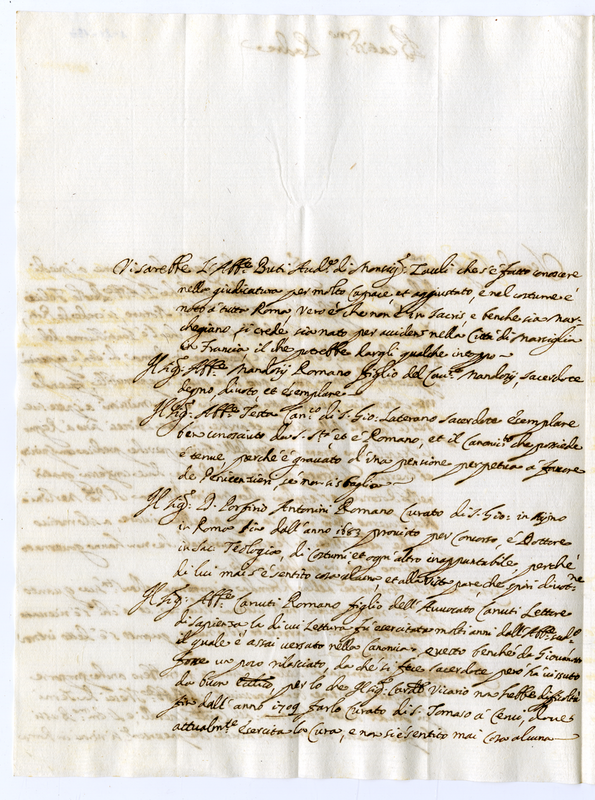 Vi sarebbe l'Abbe. Buti Aud.re di Monsig.r che s'è fatto conoscere
nella giudicatura per molto capace, et aggiustato, e nel costume è
noto à tutta Roma, Vero è che non è in Sacris, e benche sia Mar-
chegiano, si crede sia nato per accidens nella Città di Marsiglia
in Francia, il che potrebbe fargli qualche
Il Sig.r Abb.e Mandosij Romano figlio del Cau.re Mandosij sacerdote
degno, divoto, et esemplare
Il Sig.r Abb.e Testa Can.co di S. Gio: Laterano sacerdote esemplare
ben conosciuto da S. S.tà et è Romano, et il Canonic.to che possiede
è tenue perche è gravato d'una pensione perpetua a favore
de Penitenzieri, se non si sbaglia
Il Sig.r D. Porfirio Antonini Romano Curato di S. Gio: in
in Roma fin dall'anno 1683 provisto per Concorso, è Dottore
in Sac. Teologia, di costumi et ogn'altro inappuntabile, perché
di lui mai s'è sentito cosa alcuna, et alla Vista pare che spiri divot.ne
Il Sig.r Abb.e Canuti Romano figlio dell'Avvocato Canuti Lettore
di Sapienza la di cui Lettura fù esercitata molti anni dall'Abb.e
il quale è assai versato nella Canonica, e certo benche da Giovane
fosse un poco rilasciato, da che si fece sacerdote però hà vissuto
da buon per lo che Il Sig.r Card.l Vicario n'a
fin dall'anno 1709 farlo Curato di S. Tomaso à Cenci, dove
attualm.te esercita la Cura, e non si è sentito mai cosa alcuna